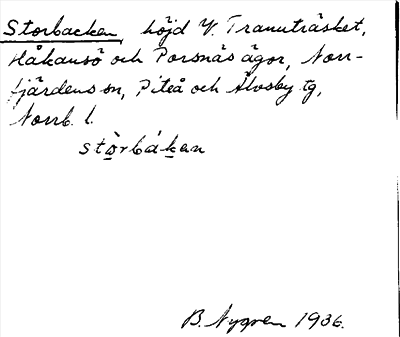 Storbacken, höjd V. Tranuträsket,
Håkansö och Porsnäs ägor, Norr-
fjärdens sn, Piteå och Älvsby tg,
Norrb. l.
stòrbákan
B. Nygren 1936.